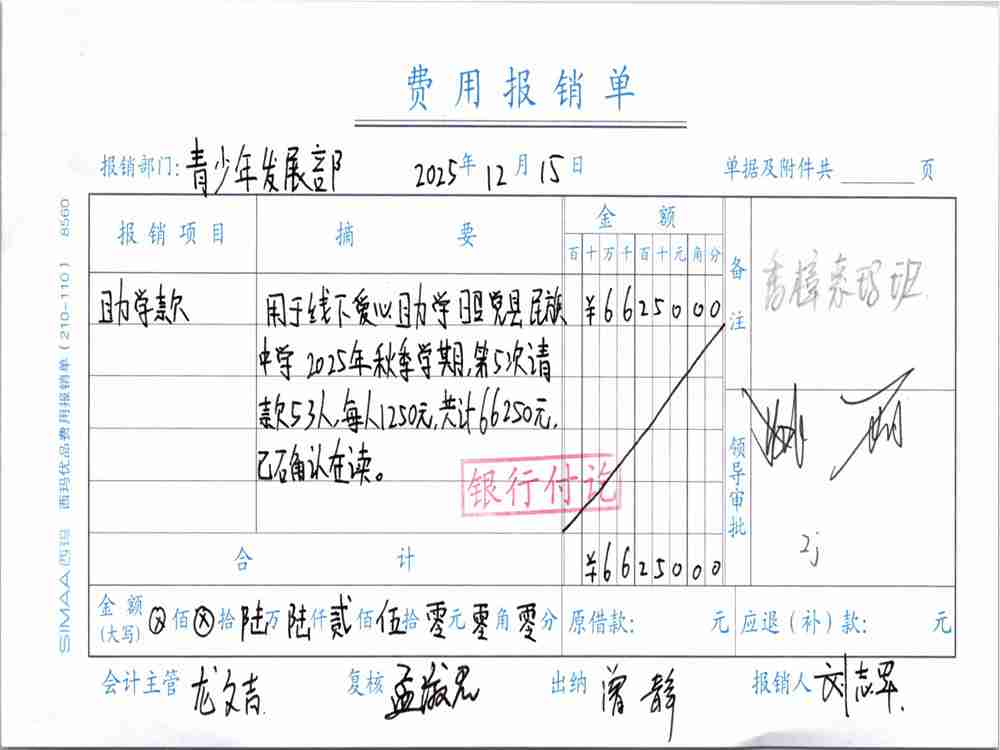 费用报销单
报销部门: 青少年发展部 2025年12月15日 单据及附件共 页
报销项目 摘要 金额 备注
百十万千百十元角分
助学款 用于线下爱心助学昭觉县民族 ¥6625000
中学2025年秋季学期,第5次请
款53人,每人1250元,共计66250元,
已确认在读。
银行付讫
领导审批
2j
合计 ¥6625000
金额(大写) ⊗佰⊗拾陆万陆仟贰佰伍拾零元零角零分 原借款: 元 应退(补)款: 元
会计主管 龙文吉 复核 孟淑君 出纳 曾静 报销人 刘志军
SIMAA西玛 西玛优品费用报销单(210-110) 8560